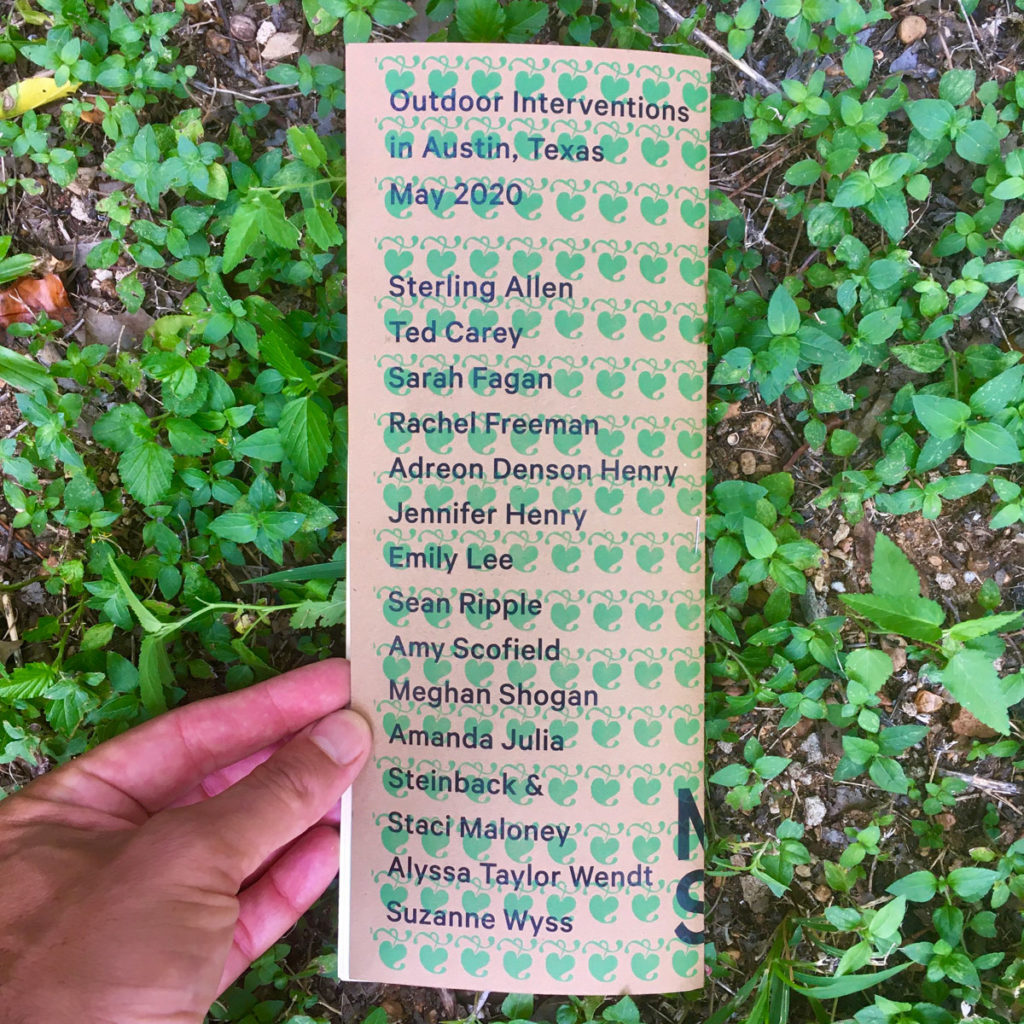 Outdoor Interventions
in Austin, Texas
May 2020
Sterling Allen
Ted Carey
Sarah Fagan
Rachel Freeman
Adreon Denson Henry
Jennifer Henry
Emily Lee
Sean Ripple
Amy Scofield
Meghan Shogan
Amanda Julia
Steinback &
Staci Maloney
Alyssa Taylor Wendt
Suzanne Wyss
M
S